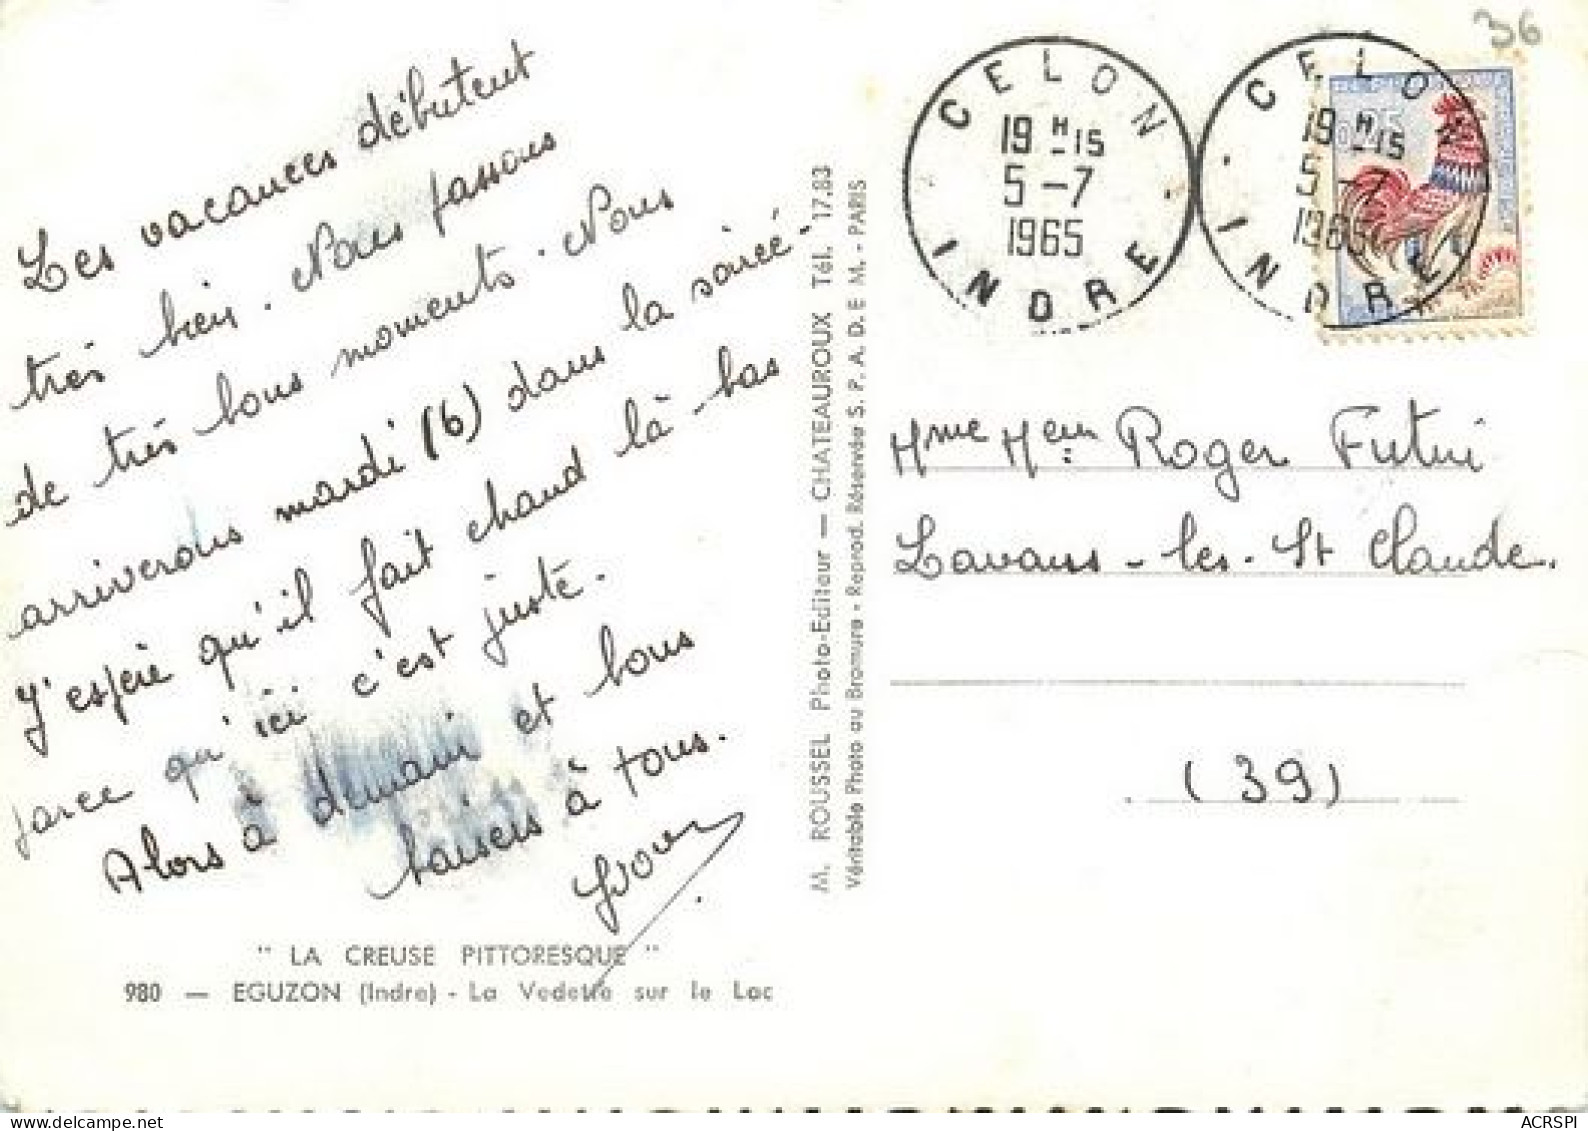 Les vacances débutent
très bien. Nous passons
de très bons moments. Nous
arriverons mardi (6) dans la soirée.
J'espère qu'il fait chaud là-bas
parce qu'ici c'est juste.
Alors à demain et bons
baisers à tous.
" LA CREUSE PITTORESQUE "
980 — EGUZON (Indre) - La Vedette sur le Lac
M. ROUSSEL Photo-Editeur — CHATEAUROUX Tél. 17.83
Véritable Photo au Bromure - Reprod. Réservée S. P. A. D. E M. - PARIS
36
CELON
19 H -15
5 -7
1965
INDRE
CELON
19 H -15
5 -7
1965
INDRE
Mme Mein Roger
Lavans-les-St Claude.
(39)
ACRSPI